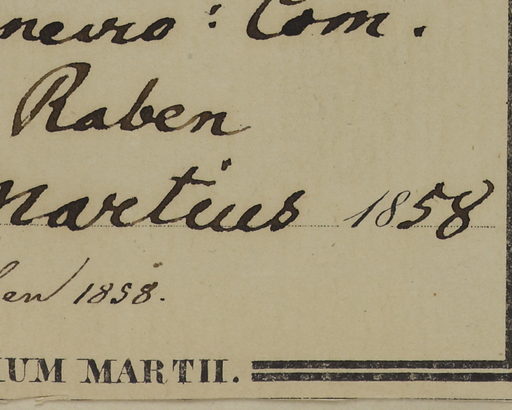 neiro : Com.
Raben
Martius 1858
en 1858.
IUM MARTII.